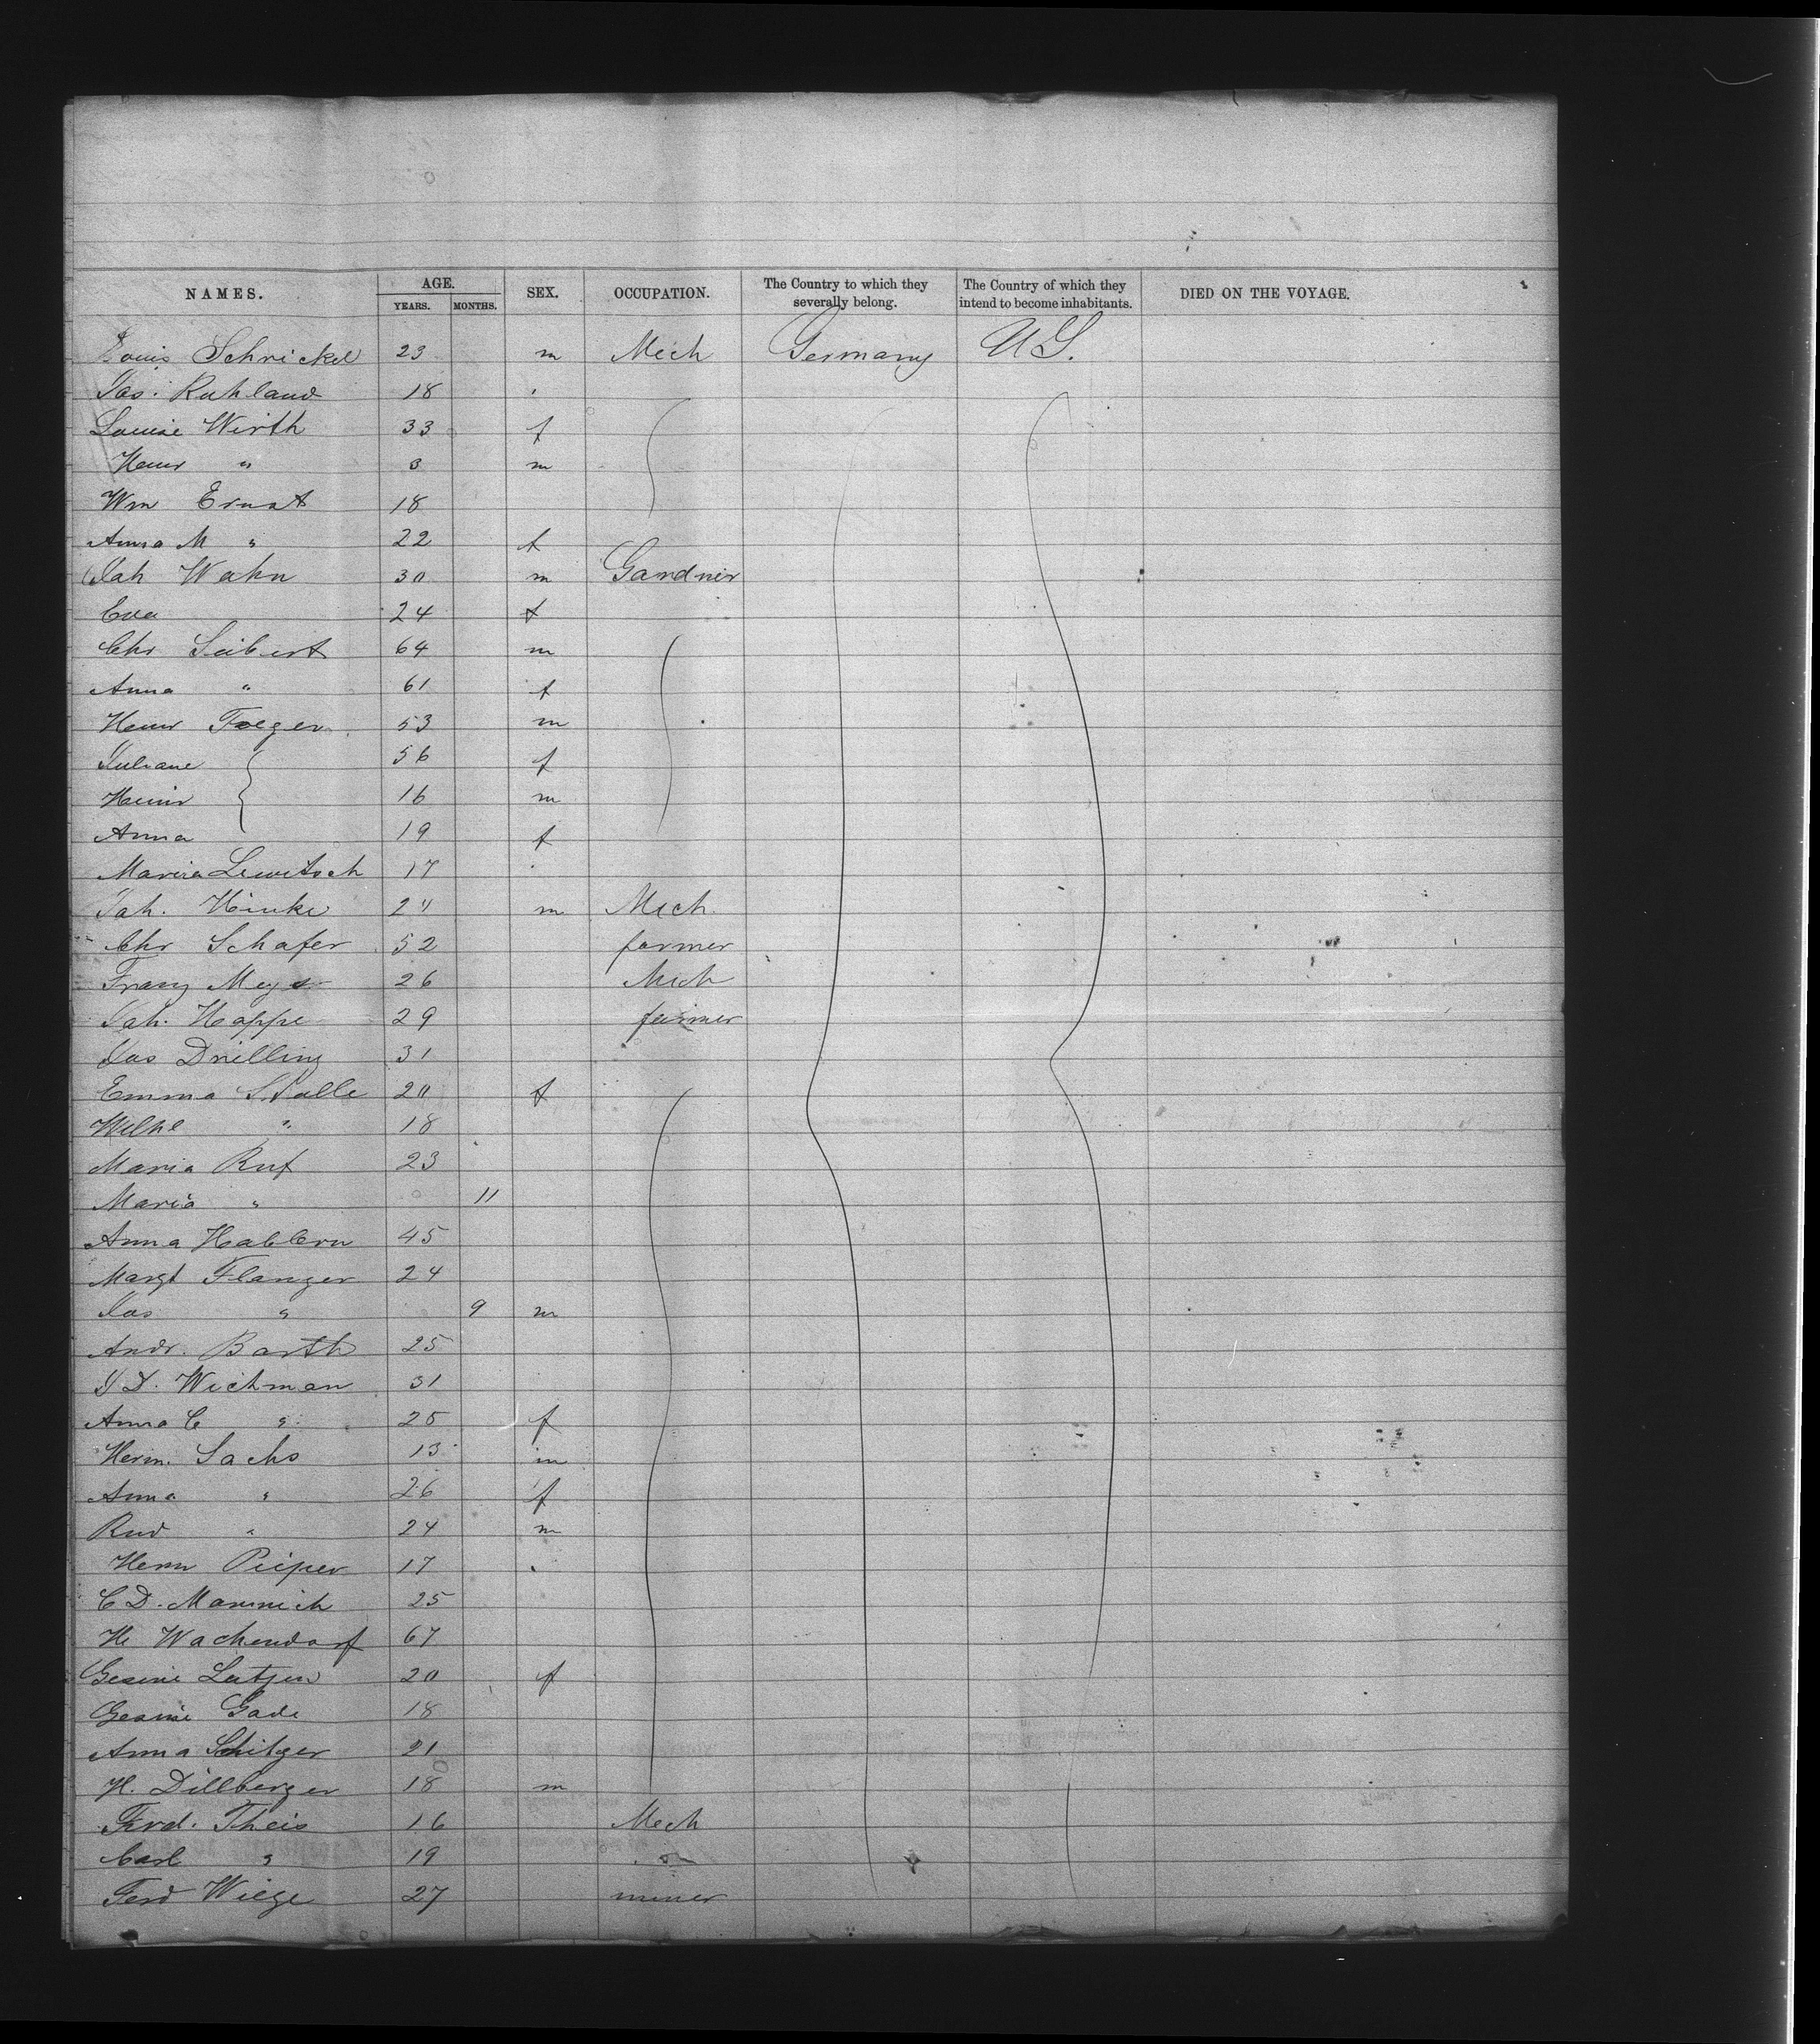 NAMES. AGE. YEARS. MONTHS. SEX. OCCUPATION. The Country to which they severally belong. The Country of which they intend to become inhabitants. DIED ON THE VOYAGE.
Louis Schrickel 23 m Mech Germany U.S.
Jos. Ruhland 18 "
Louise Wirth 33 f
Heinr " 3 m
Wm Ernst 18
Anna M " 22 f
Joh Wahn 30 m Gardner
Eva 24 f
Chr Seibert 64 m
Anna " 61 f
Heinr Traeger 53 m
Juliane 56 f
Heinr 16 m
Anna 19 f
Maria Lewitsch 17 "
Joh. Hinke 24 m Mech
Chr Schafer 52 farmer
Franz Meyer 26 Mech
Joh. Hoppe 29 farmer
Jos Drilling 31
Emma S. Salle 20 f
Wilhe " 18
Maria Ruf 23
Maria " 11
Anna 45
Margt Flanger 24
Jos " 9 m
Andr. Barth 25
J D. Wichman 31
Anna C " 25 f
Herm. Sachs 13 m
Anna " 26 f
Rud " 24 m
Herm Pieper 17 "
C D. Mammich 25
H Wachendorf 67
Gesine Lutjen 20 f
Gesine Gade 18
Anna Schitger 21
H. Dillberger 18 m
Ferd. Theis 16 Mech
Carl " 19 "
Ferd Wiege 27 miner